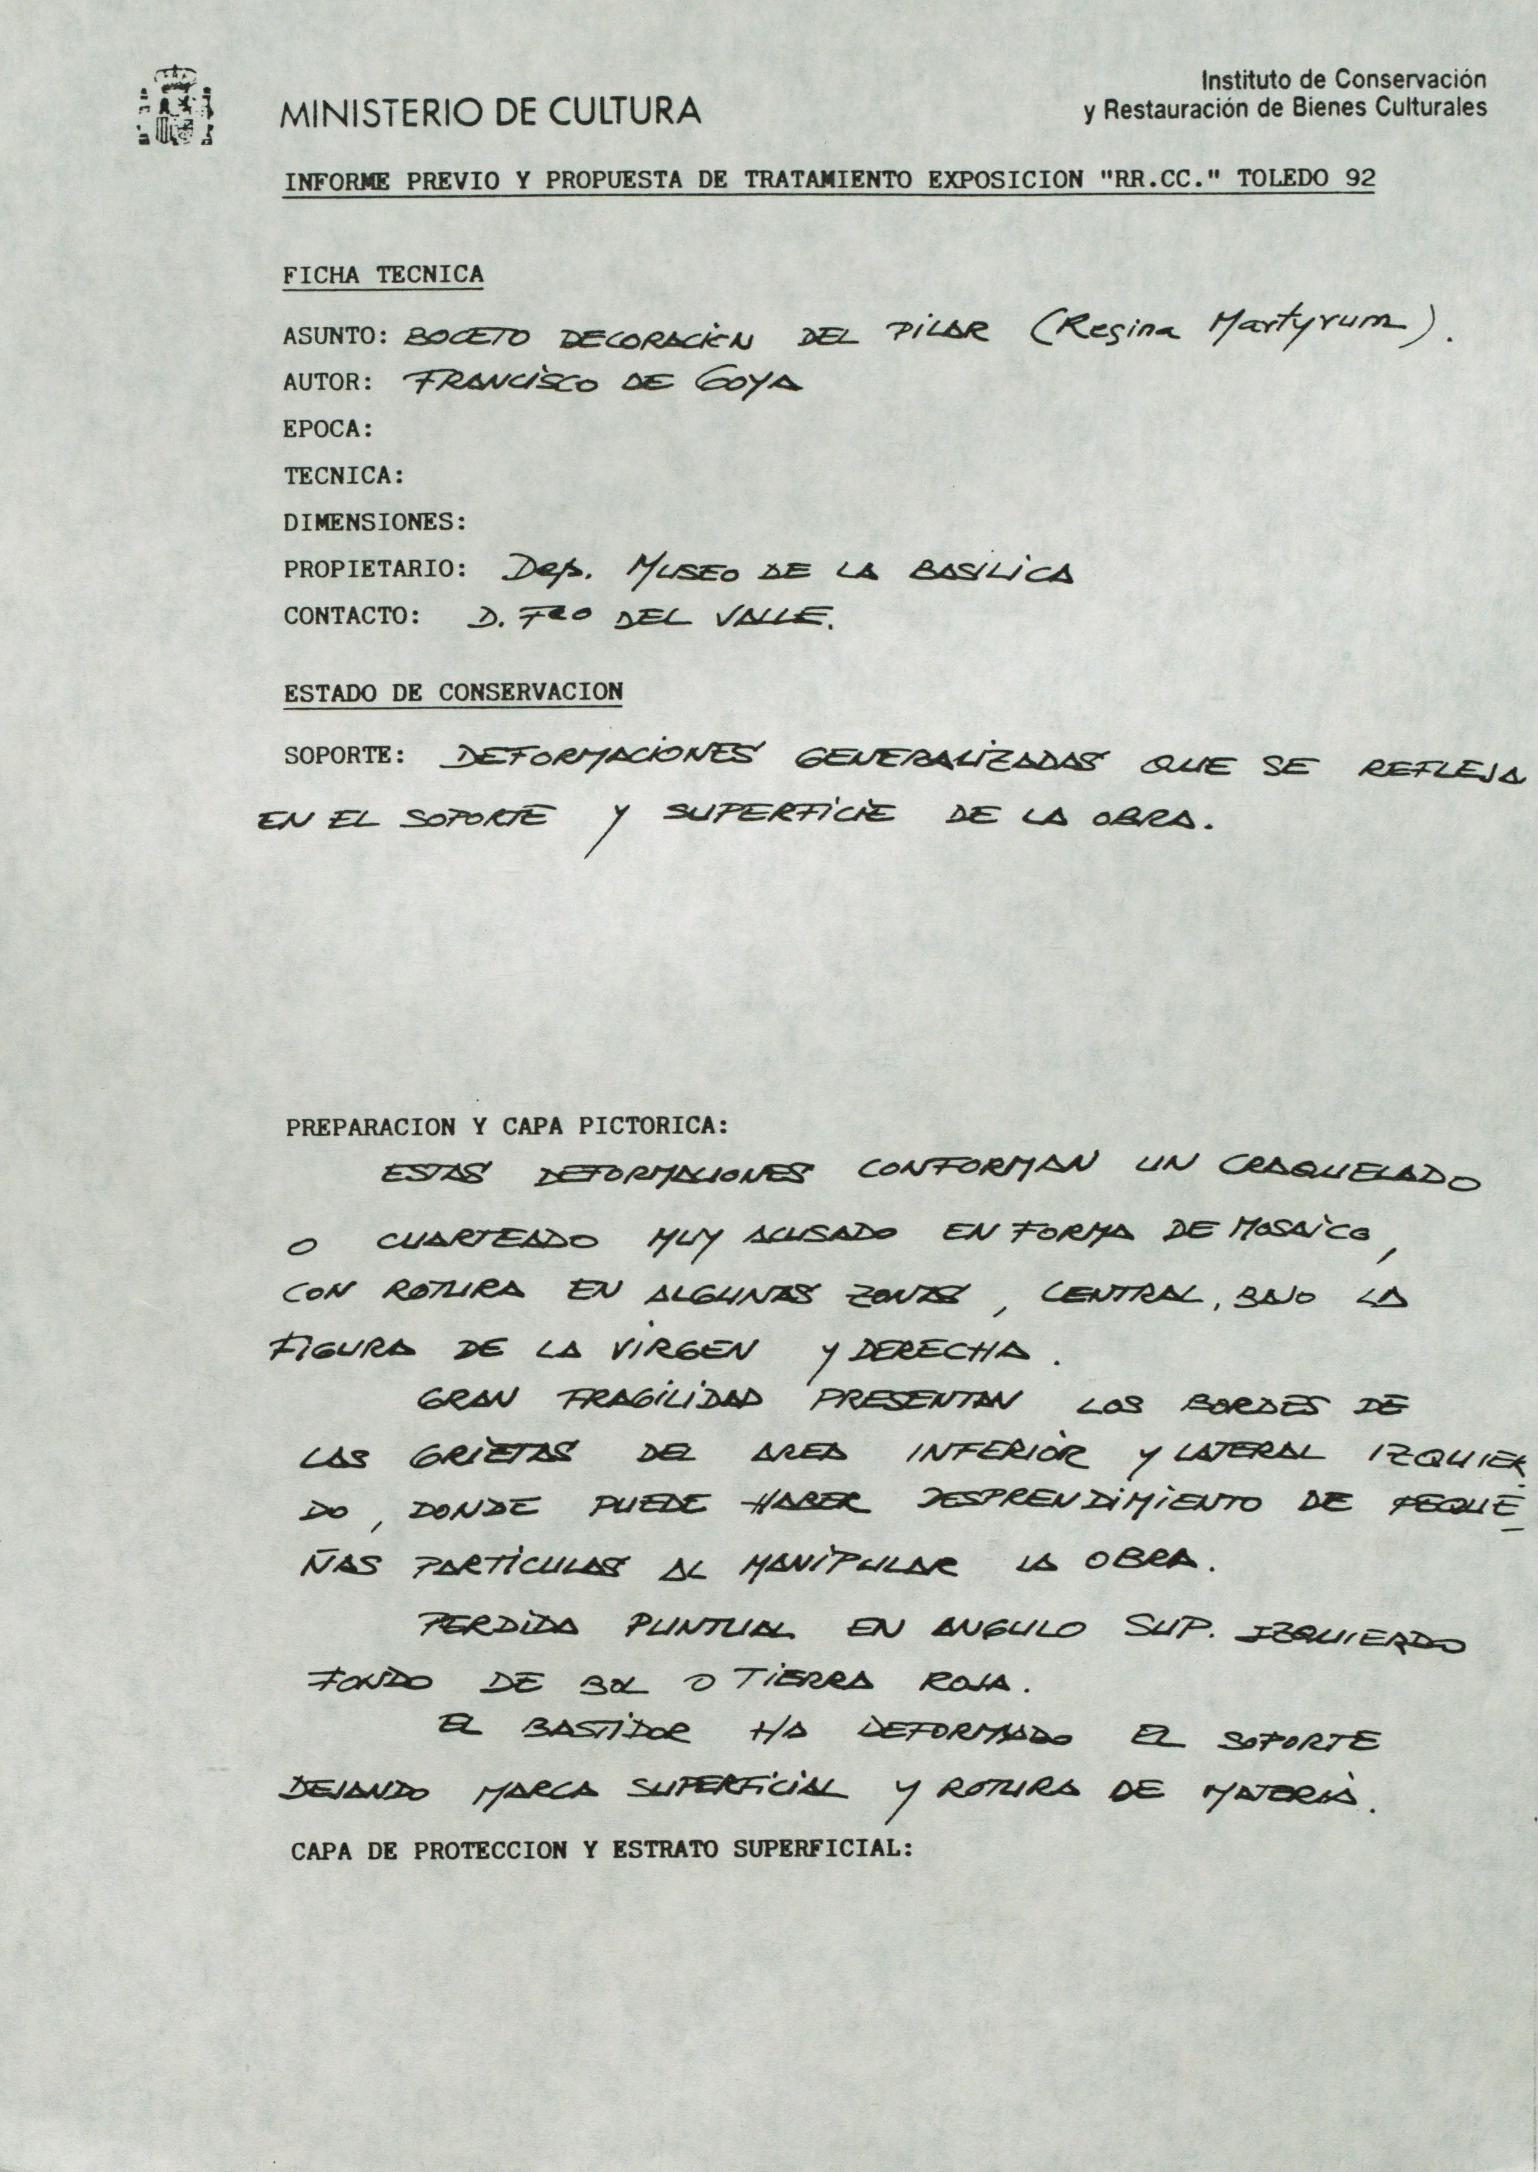 MINISTERIO DE CULTURA
Instituto de Conservación
y Restauración de Bienes Culturales
INFORME PREVIO Y PROPUESTA DE TRATAMIENTO EXPOSICION "RR.CC." TOLEDO 92
FICHA TECNICA
ASUNTO: BOCETO DECORACIÓN DEL PILAR (Regina Martyrum).
AUTOR: FRANCISCO DE GOYA
EPOCA:
TECNICA:
DIMENSIONES:
PROPIETARIO: Dep. MUSEO DE LA BASILICA
CONTACTO: D. FCO DEL VALLE.
ESTADO DE CONSERVACION
SOPORTE: DEFORMACIONES GENERALIZADAS QUE SE REFLEJA
EN EL SOPORTE Y SUPERFICIE DE LA OBRA.
PREPARACION Y CAPA PICTORICA:
ESTAS DEFORMACIONES CONFORMAN UN CRAQUELADO
O CUARTEADO MUY ACUSADO EN FORMA DE MOSAICO,
CON ROTURA EN ALGUNAS ZONAS, CENTRAL, BAJO LA
FIGURA DE LA VIRGEN Y DERECHA.
GRAN FRAGILIDAD PRESENTAN LOS BORDES DE
LAS GRIETAS DEL AREA INFERIOR Y LATERAL IZQUIER
DO, DONDE PUEDE HABER DESPRENDIMIENTO DE PEQUE-
ÑAS PARTICULAS AL MANIPULAR LA OBRA.
PERDIDA PUNTUAL EN ANGULO SUP. IZQUIERDO
FONDO DE BOL O TIERRA ROJA.
EL BASTIDOR HA DEFORMADO EL SOPORTE
DEJANDO MARCA SUPERFICIAL Y ROTURA DE MATERIA.
CAPA DE PROTECCION Y ESTRATO SUPERFICIAL: